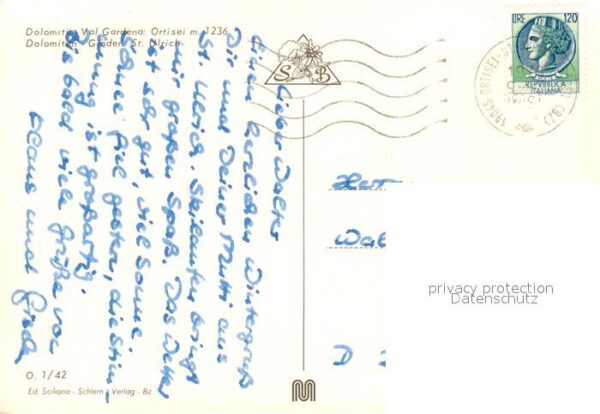 Dolomiti - Val Gardena: Ortisei m. 1236
Dolomiten - Gröden: St. Ulrich
LIRE 120
REPVBBLICA
ITALIANA
S B
Lieber Walter
Einen herzlichen Wintergruß
Dir und Deiner Mutti aus
St. Ulrich. Skilaufen bringt
mir großen Spaß. Das Wetter
ist sehr gut, viel Sonne.
Schnee fiel gestern, die Stim-
mung ist großartig.
Bis bald viele Grüße von
Klaus und
Herr
Wal
D
privacy protection
Datenschutz
O. 1/42
Ed Sciliana - Schlern - Verlag - Bz